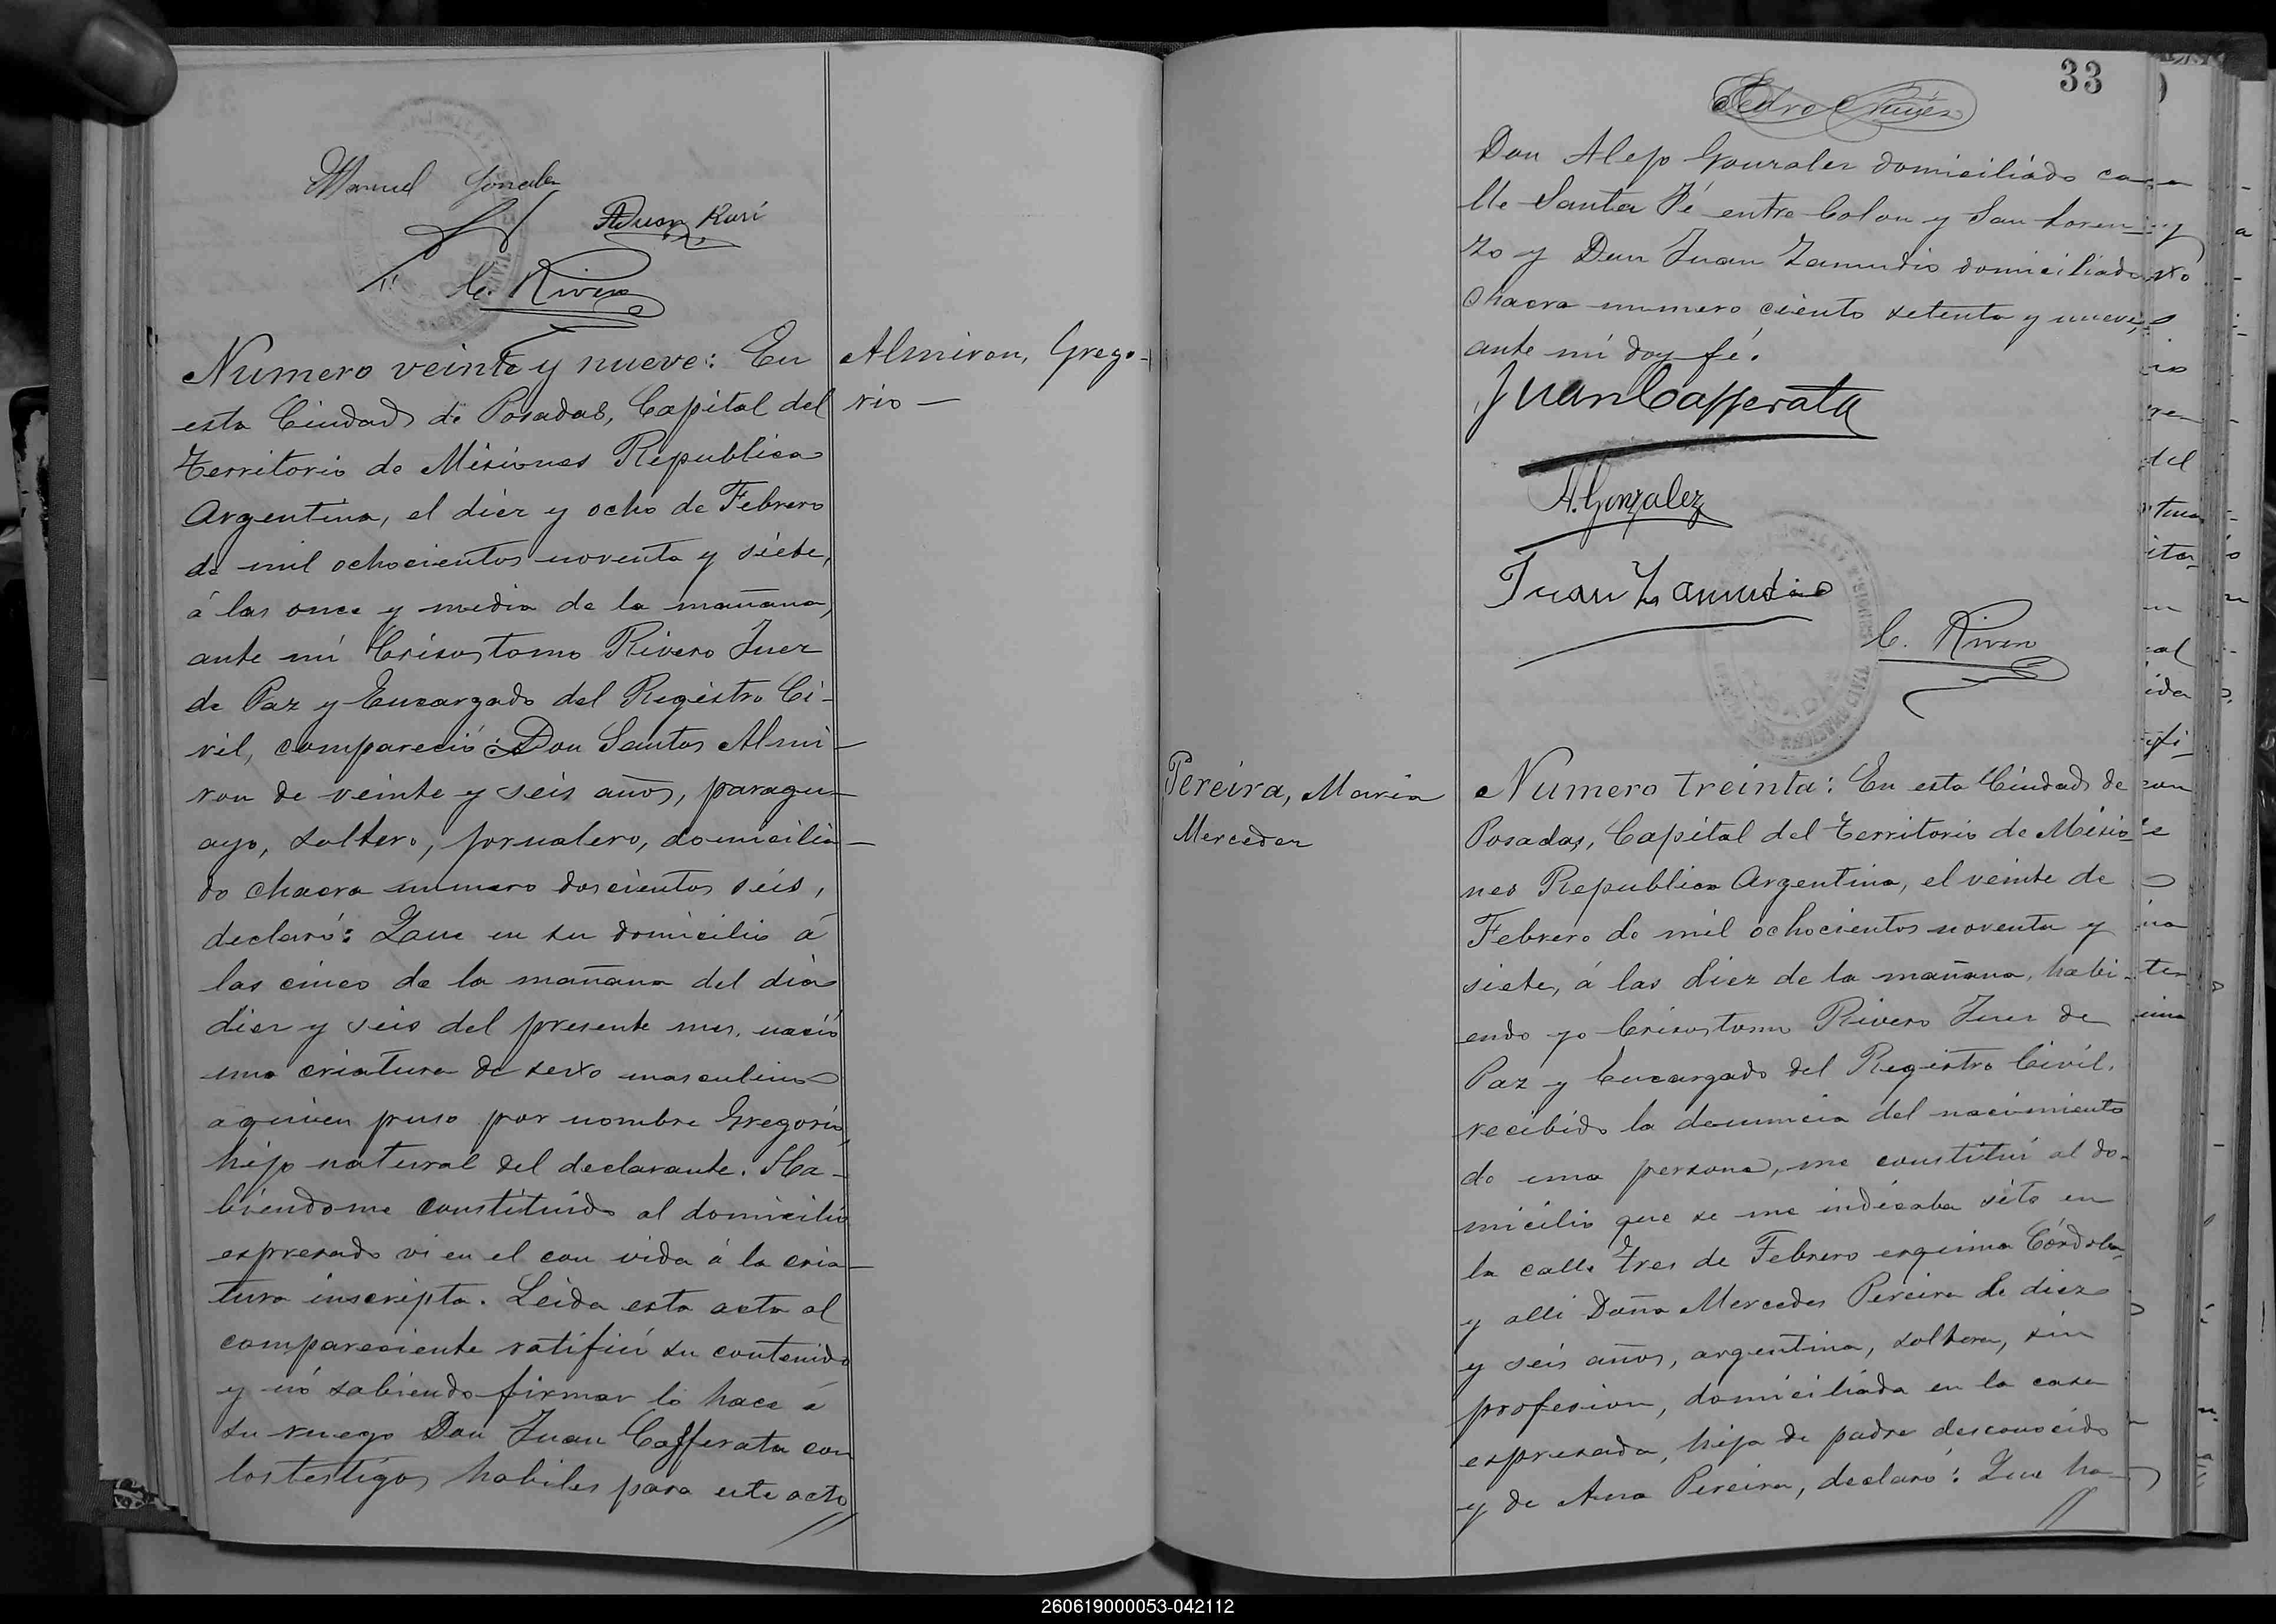 Manuel Gonzalez
C. Rivero
Numero veinte y nueve: En
esta Ciudad de Posadas, Capital del
Territorio de Misiones Republica
Argentina, el diez y ocho de Febrero
de mil ochocientos noventa y siete,
á las once y media de la mañana,
ante mí Crisostomo Rivero Juez
de Paz y Encargado del Registro Ci-
vil, compareció: Don Santos Almi-
ron de veinte y seis años, paragu-
ayo, soltero, jornalero, domicilia-
do chacra numero doscientos seis,
declaró: Que en su domicilio á
las cinco de la mañana del dia
diez y seis del presente mes, nació
una criatura de sexo masculino
aquien puso por nombre Gregorio,
hijo natural del declarante. Ha-
biendome constituido al domicilio
espresado vi en el con vida á la cria-
tura inscripta. Leida esta acta al
compareciente ratificó su contenido
y nó sabiendo firmar lo hace á
su ruego Don Juan Cafferata con
los testigos habiles para este acto
Almiron, Grego-
rio —
33
Pedro Nuñez
Don Alejo Gonzalez domiciliado ca-
lle Santa Fé entre Colon y San Loren-
zo y Don Juan Zamudio domiciliado
chacra numero ciento setenta y nueve,
ante mí doy fé.
Juan Cafferata
A. Gonzalez
Juan Zamudio
C. Rivero
Pereira, Maria
Mercedes
Numero treinta: En esta Ciudad de
Posadas, Capital del Territorio de Misio-
nes Republica Argentina, el veinte de
Febrero de mil ochocientos noventa y
siete, á las diez de la mañana, habi-
endo yo Crisostomo Rivero Juez de
Paz y Encargado del Registro Civil,
recibido la denuncia del nacimiento
de una persona, me constituí al do-
micilio que se me indicaba sito en
la calle Tres de Febrero esquina Córdoba
y alli Doña Mercedes Pereira de diez
y seis años, argentina, soltera, sin
profesion, domiciliada en la casa
espresada, hija de padre desconocido
y de Ana Pereira, declaró: Que ha-
260619000053-042112